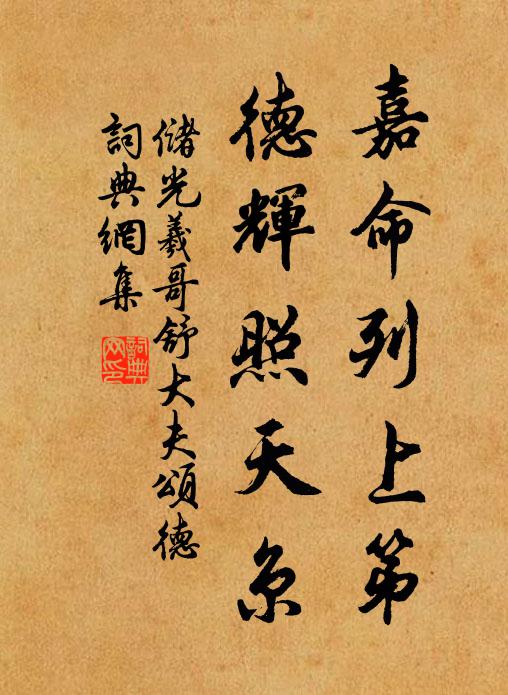 嘉命列上第
德輝照天京
儲光羲哥舒大夫頌德
詞典網集
詞典
网印